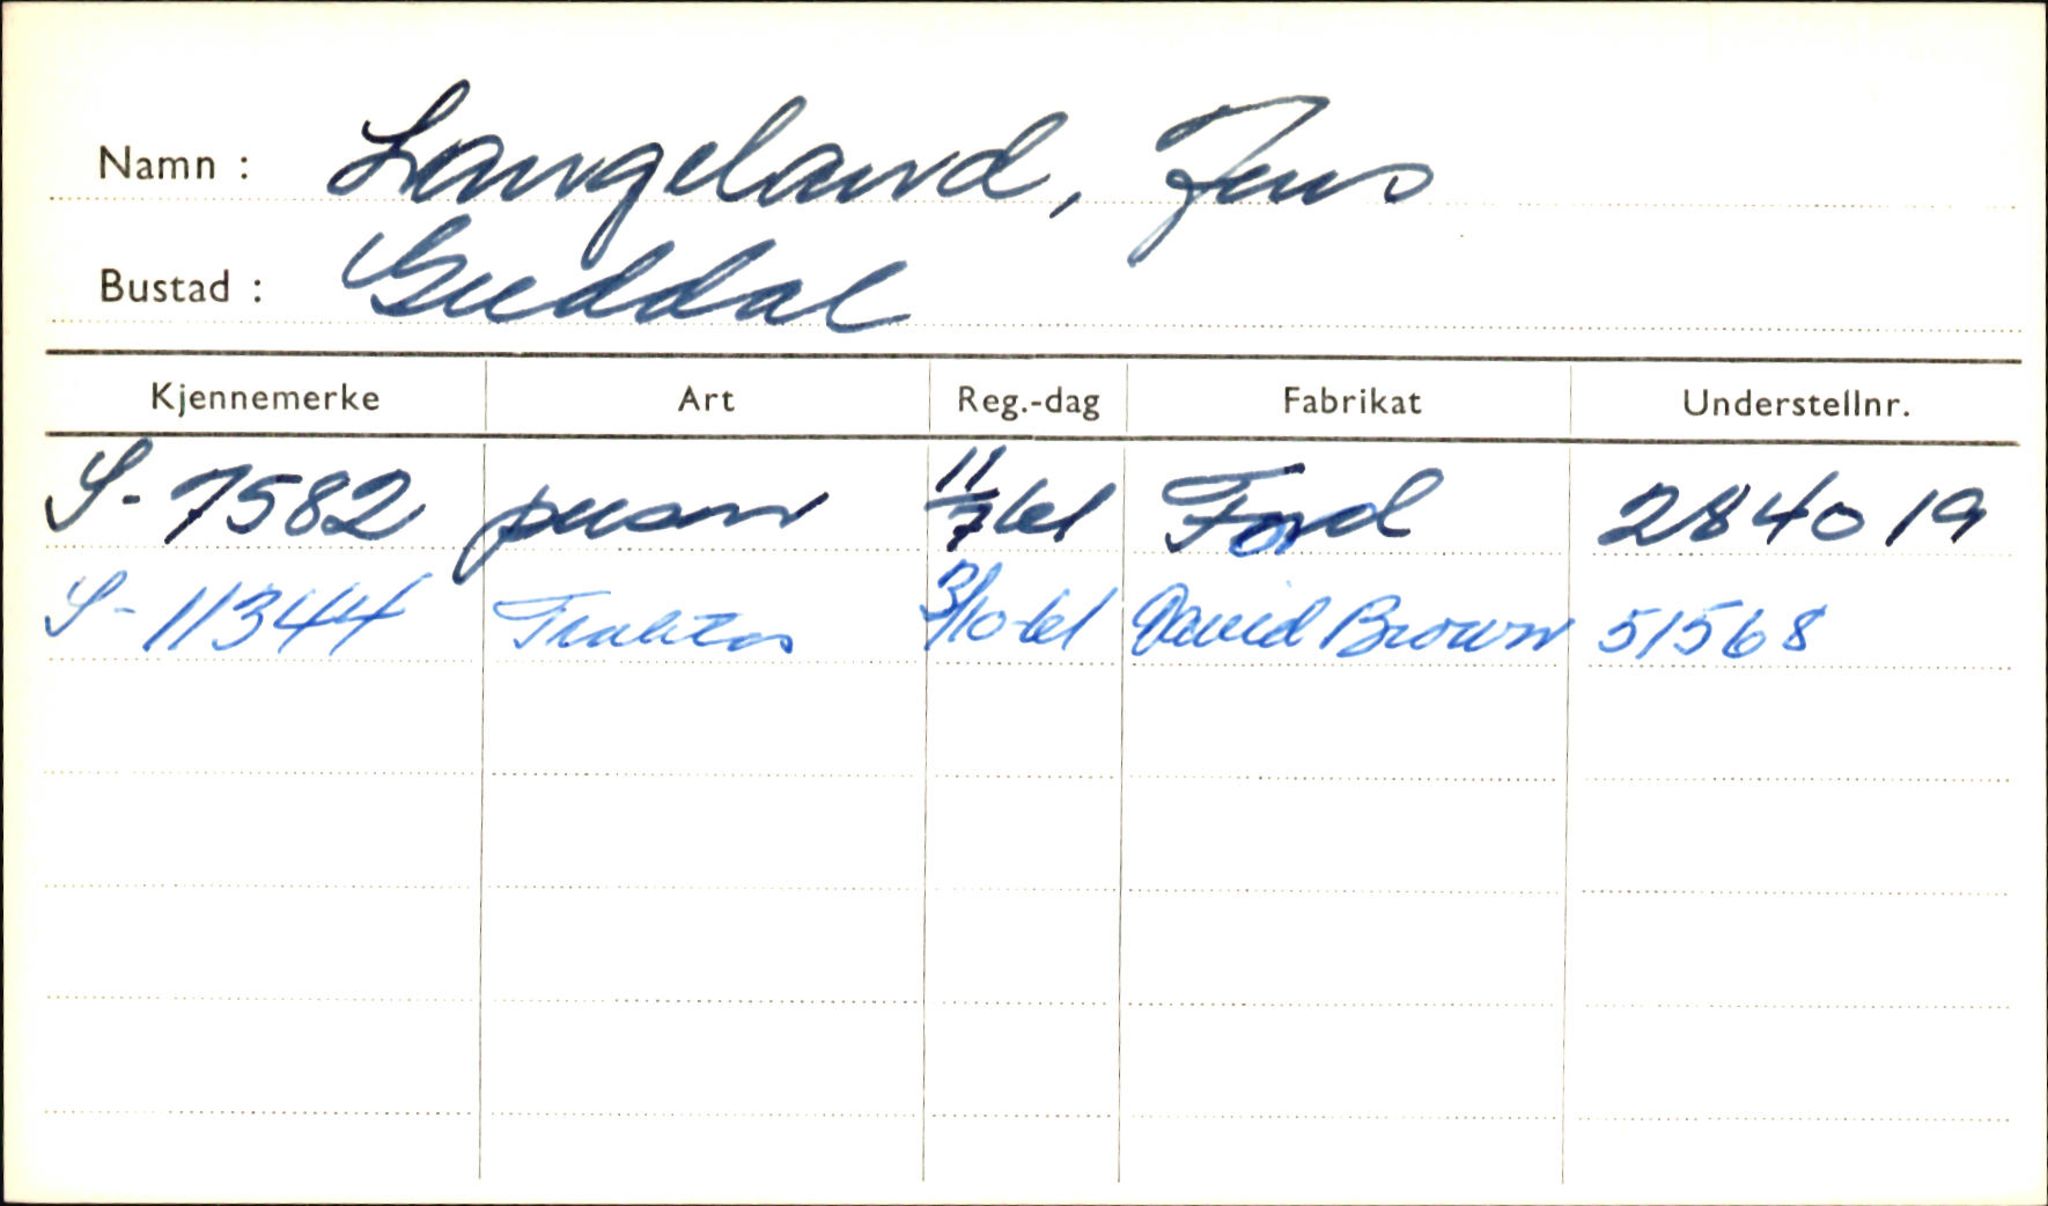 Namn : Langeland, Jens
Bustad : Guddal
Kjennemerke Art Reg.-dag Fabrikat Understellnr.
S-7582 person 11/7 61 Ford 284019
S-11344 Traktor 3/10-61 David Brown 51568